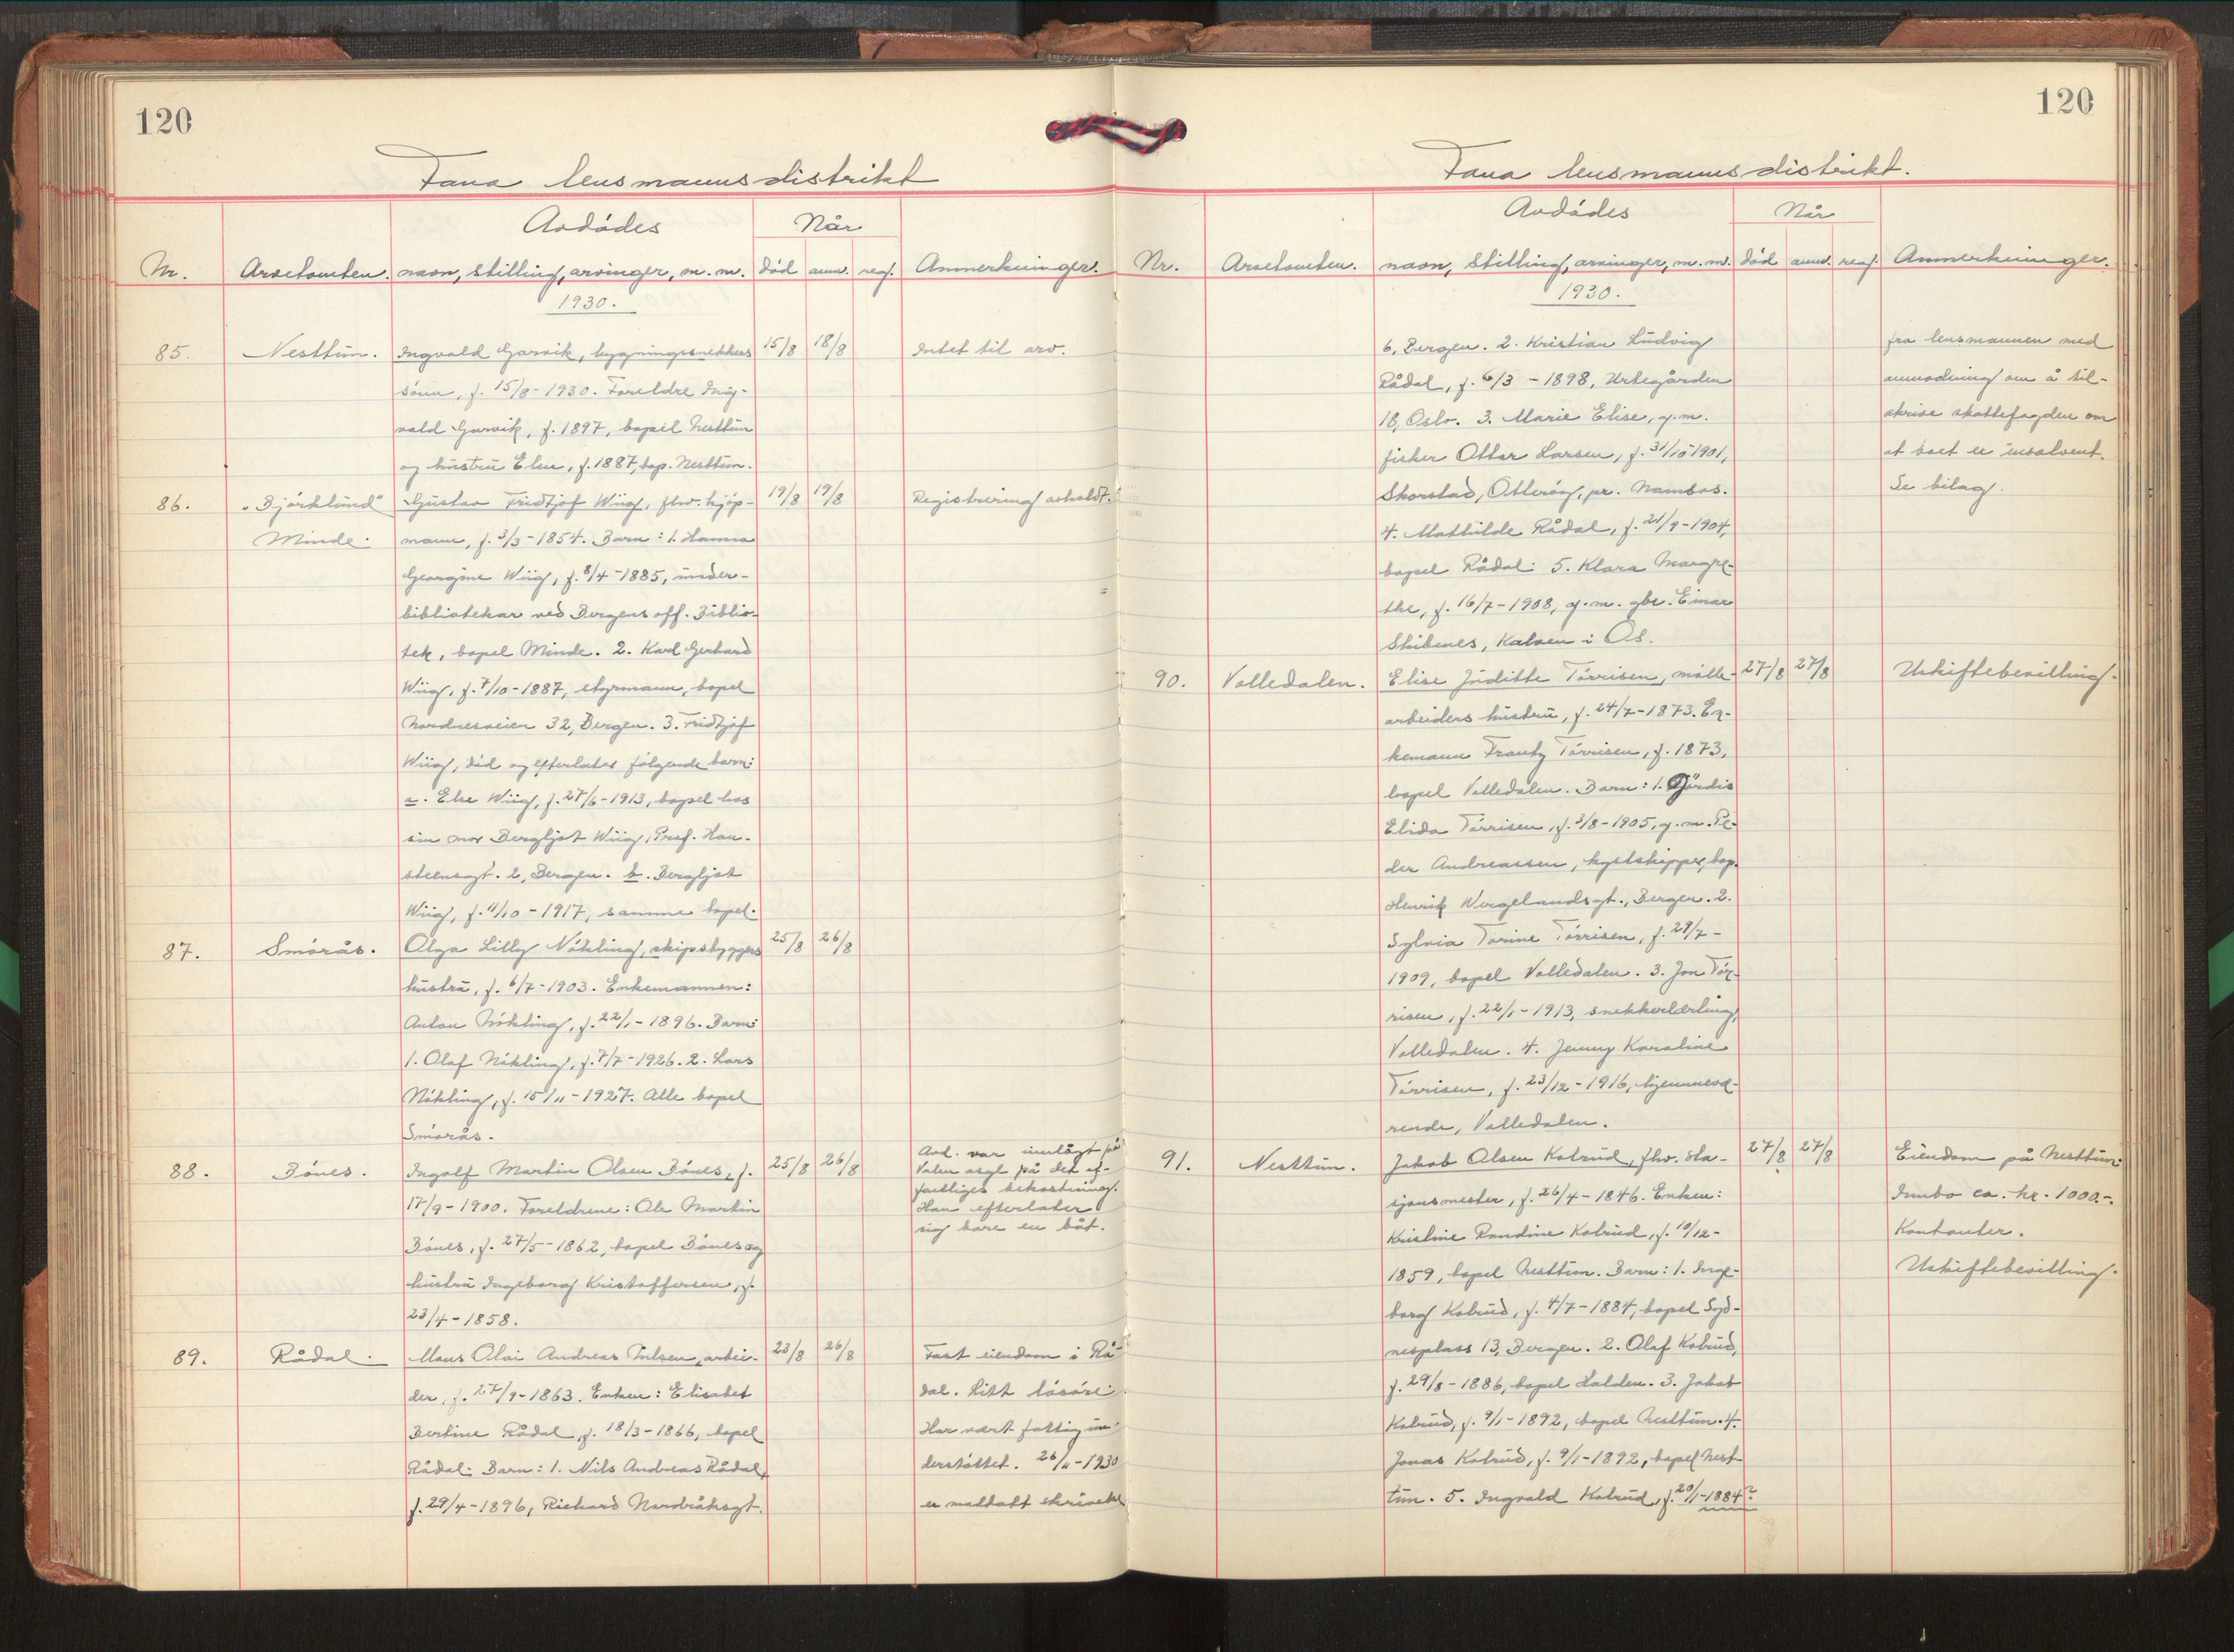 120
Fana lensmannsdistrikt
Avdødes
Når
Nr.
Arvetomten.
navn, stilling, arvinger, m. m.
død
anm.
reg.
Anmerkninger.
1930.
85.
Nesttun.
Ingvald Garvik, bygningssnekkers
15/8
18/8
Intet til arv.
sønn, f. 15/8-1930. Foreldre Ing-
vald Garvik, f. 1897, bopel Nesttun
og hustru Elen, f. 1887, bop. Nesttun.
86.
"Bjørklund"
Minde.
Gustav Fridtjof Wiig, fhv. kjøp-
19/8
19/8
Registrering avholdt.
mann, f. 3/3-1854. Barn: 1. Hanna
Georgine Wiig, f. 8/4-1885, under-
bibliotekar ved Bergens off. Biblio-
tek, bopel Minde. 2. Karl Gerhard
Wiig, f. 7/10-1887, styrmann, bopel
Nordnesveien 32, Bergen. 3. Fridtjof
Wiig, død og efterlater følgende barn:
a. Else Wiig, f. 27/6-1913, bopel hos
sin mor Bergljot Wiig, Prof. Han-
steensgt. 2, Bergen. b. Bergljot
Wiig, f. 11/10-1917, samme bopel.
87.
Smørås.
Olga Lilly Nökling, skipsbyggers
25/8
26/8
hustru, f. 6/7-1903. Enkemannen:
Anton Nökling, f. 22/1-1896. Barn:
1. Olaf Nökling, f. 7/7-1926. 2. Lars
Nökling, f. 15/11-1927. Alle bopel
Smørås.
88.
Bønes.
Ingolf Martin Olsen Bønes, f.
25/8
26/8
Avd. var innlagt på
Valen asyl på det of-
fentliges bekostning.
Han efterlater
sig bare en båt.
17/9-1900. Foreldrene: Ole Martin
Bønes, f. 27/5-1862, bopel Bønes og
hustru Ingeborg Kristoffersen, f.
23/4-1858.
89.
Rådal.
Mons Olai Andreas Nilsen, arbei-
23/8
26/8
Fast eiendom i Rå-
der, f. 27/9-1863. Enken: Elisabet
dal. Litt løsøre.
Bertine Rådal, f. 18/3-1866, bopel
Har vært fattigun-
Rådal. Barn: 1. Nils Andreas Rådal,
derstøttet. 26/11-1930
f. 29/4-1896, Richard Nordråksgt.
er mottatt skrivelse
120
Fana lensmannsdistrikt.
Avdødes
Når
Nr.
Arvetomten.
navn, stilling, arvinger, m. m.
død
anm.
reg.
Anmerkninger.
1930.
6, Bergen. 2. Kristian Ludvig
fra lensmannen med
Rådal, f. 6/3-1898, Urtegården
anmodning om å til-
18, Oslo. 3. Marie Elise, g. m.
skrive skattefogden om
fisker Ottar Larsen, f. 31/10-1901,
at boet er insolvent.
Skorstad, Otterøy, pr. Namsos.
Se bilag.
4. Mathilde Rådal, f. 21/9-1904,
bopel Rådal. 5. Klara Margre-
the, f. 16/7-1908, g. m. gbr. Einar
Skibenes, Kalven i Os.
90.
Volledalen.
Elise Juditte Tørrisen, mølle-
27/8
27/8
Uskiftebevilling.
arbeiders hustru, f. 24/7-1873. En-
kemann Frantz Tørrisen, f. 1873,
bopel Volledalen. Barn: 1. Gjørdis
Elida Tørrisen, f. 3/8-1905, g. m. Pe-
der Andreassen, kystskipper, bop.
Henrik Wergelandsgt., Bergen. 2.
Sylvia Torine Tørrisen, f. 29/7-
1909, bopel Volledalen. 3. Jon Tør-
risen, f. 22/1-1913, snekkerlærling,
Volledalen. 4. Jenny Karoline
Tørrisen, f. 23/12-1916, hjemmevæ-
rende, Volledalen.
91.
Nesttun.
Jakob Olsen Kolrud, fhv. sta-
27/8
27/8
Eiendom på Nesttun.
sjonsmester, f. 26/4-1846. Enken:
Innbo ca. kr. 1000.-.
Kristine Randine Kolrud, f. 10/12-
Kontanter.
1859, bopel Nesttun. Barn: 1. Inge-
Uskiftebevilling.
borg Kolrud, f. 4/7-1884, bopel Syd-
nesplass 13, Bergen. 2. Olaf Kolrud,
f. 29/8-1886, bopel Halden. 3. Jakob
Kolrud, f. 9/1-1892, bopel Nesttun. 4.
Jonas Kolrud, f. 9/1-1892, bopel Nest-
tun. 5. Ingvald Kolrud, f. 20/1-1884?